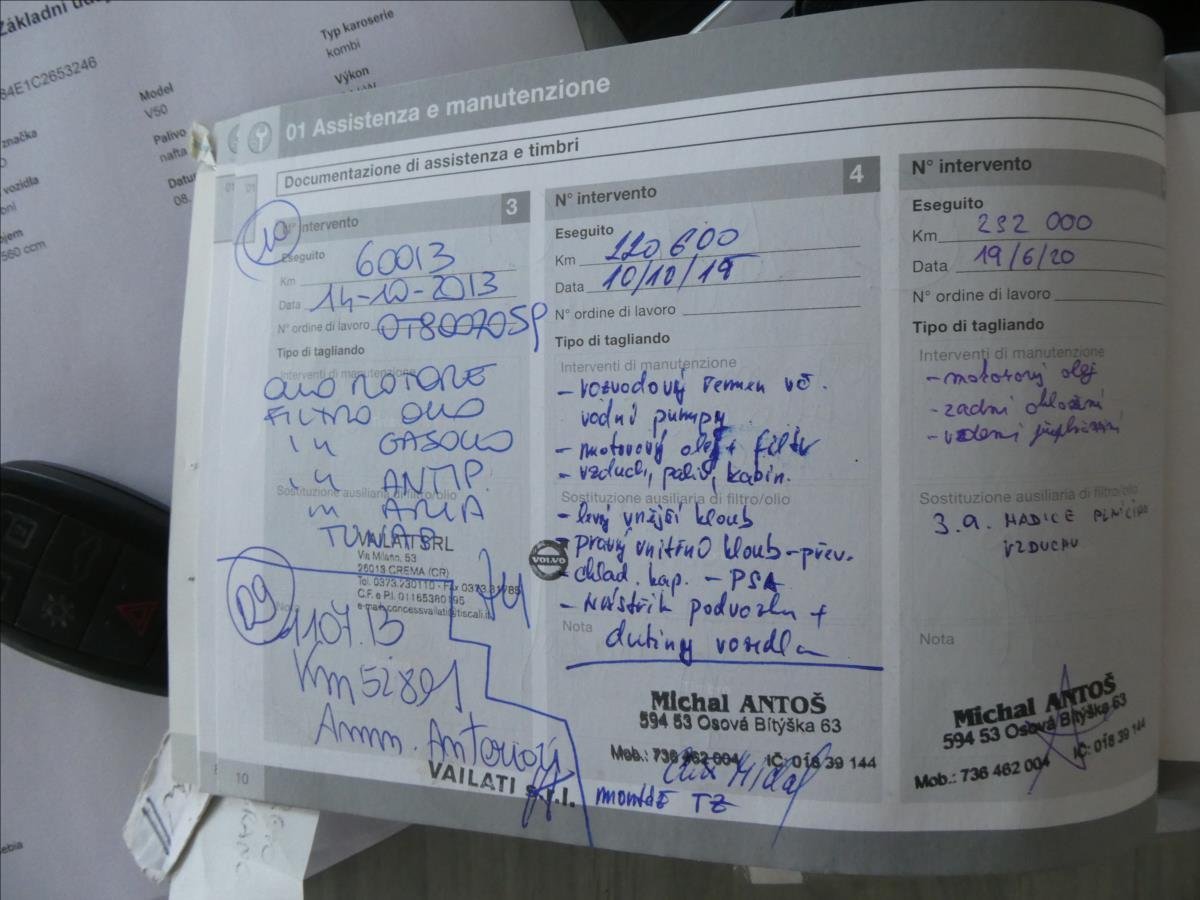 Základní úd
84E1C2653246
Typ karoserie
kombi
Model
V50
Výkon
značka
Palivo
nafta
vozidla
Datu
08.
560 ccm
01 Assistenza e manutenzione
Documentazione di assistenza e timbri
10
N° intervento 3
Eseguito
Km 60013
Data 14-10-2013
N° ordine di lavoro OT800705P
Tipo di tagliando
Interventi di manutenzione
OLIO MOTORE
FILTRO OLIO
GASOLIO
ANTIP.
ARIA
Sostituzione ausiliaria di filtro/olio
VAILATI SRL
Via Milano, 53
26013 CREMA (CR)
Tel. 0373.230110 - Fax 0373.31785
C.F. e P.I. 01165380195
e-mail: concessvailati@tiscali.it
Nota
09
1107.13
Km 52891
VAILATI s.r.l.
10
N° intervento 4
Eseguito
Km 220 600
Data 10/10/18
N° ordine di lavoro
Tipo di tagliando
Interventi di manutenzione
- rozvodový řemen vč.
vodní pumpy
- motorový olej + filtr
- vzduch, paliv, kabin.
Sostituzione ausiliaria di filtro/olio
- levý vnější kloub
- pravý vnitřní kloub - přev.
VOLVO
- chlad. kap. - PSA
- Nástřik podvozku +
Nota
dutiny vozidla
Michal ANTOŠ
594 53 Osová Bítýška 63
Mob.: 736 462 004 IČ: 018 39 144
montáž TZ
N° intervento
Eseguito
Km 232 000
Data 19/6/20
N° ordine di lavoro
Tipo di tagliando
Interventi di manutenzione
- motorový olej
- zadní
Sostituzione ausiliaria di filtro/olio
3.a. HADICE PLNÍCÍHO
VZDUCHU
Nota
Michal ANTOŠ
594 53 Osová Bítýška 63
Mob.: 736 462 004 IČ: 018 39 144